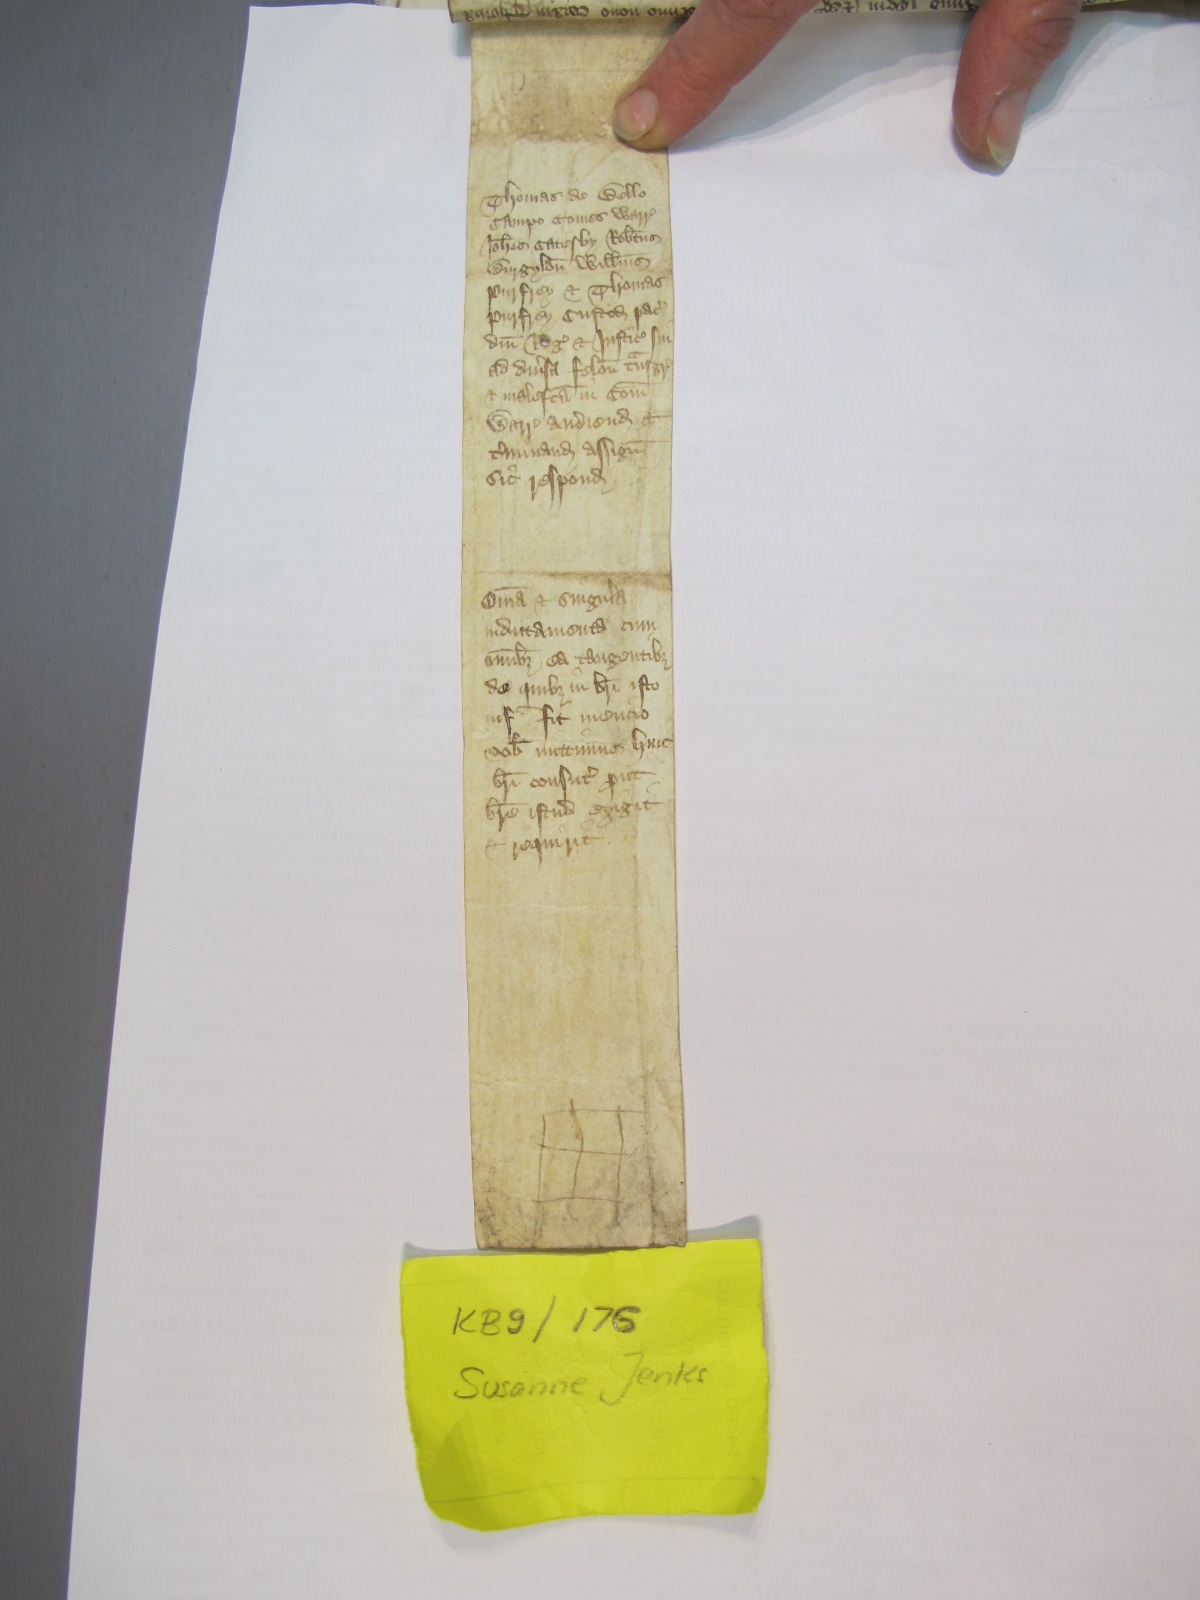 Thomas de Bello
Campo Comes Warr
Johes Catesby Robtus
Burgylon Willms
Purfrey & Thomas
Purfrey Custod pac
dni Reg & Justic sui
ad divsa felon tnsgr
& malefca in Com
Warr audiend &
tminand assign
Sic respond
Omia & singula
indictamenta cum
omibz ea tangentibz
de quibz in bri isto
fit mencio
vob mittimus huic
bri consut put
bre istud exigit
& requirit
KB9/176
Susanne Jenks